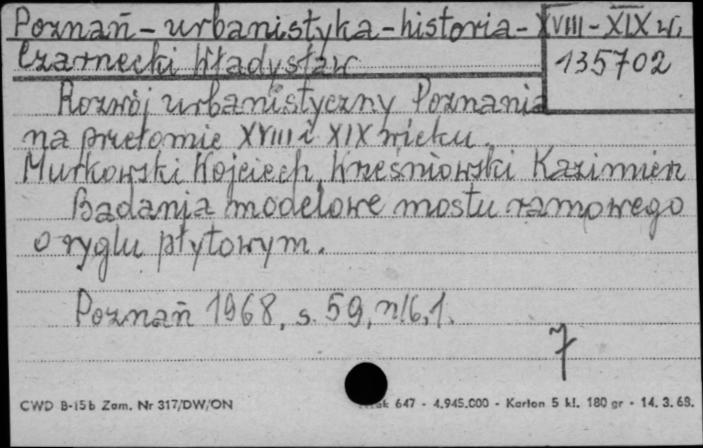 Poznań - urbanistyka - historia - XVIII - XIX w.
Czarnecki Władysław
135702
Rozwój urbanistyczny Poznania
na przełomie XVIII i XIX wieku.
Murkowski Wojciech, Wrześniowski Kazimierz
Badania modelowe mostu rampowego
o ryglu płytowym.
Poznań 1968, s. 59, nl 6, 1.
7
CWD B-15b Zam. Nr 317/DW/ON
647 - 4.945.000 - Karton 5 kl. 180 gr - 14. 3. 68.